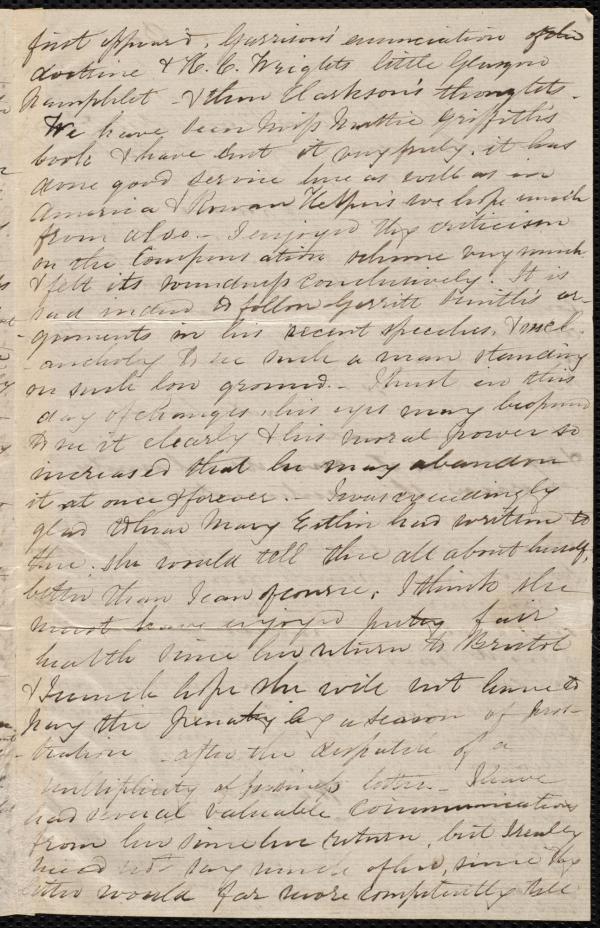 first appear'd, Garrison's enunciation of the
doctrine & H. C. Wright's little Glasgow
Pamphlet - & then Clarkson's thoughts -
We have seen Miss Mattie Griffith's
book & have sent it, it has
done good service here as well as in
America & Rowan Helper's we hope much
from also. - I enjoy'd thy criticism
on the Compensation scheme very much
& felt its soundness conclusively. It is
sad indeed to follow Gerritt Smith's ar-
-guments in his recent speeches, & mel-
-ancholy to see such a man standing
on such low ground. - I trust in this
day of changes, his eyes may be opened
to see it clearly & his moral power so
increased that he may abandon
it at once & forever. - I was exceedingly
glad to hear Mary Estlin had written to
thee. she would tell thee all about herself,
better than I can of course, I think she
must have enjoy'd pretty fair
health since her return to Bristol
& I much hope she will not have to
pay the penalty by a season of pros-
-tration after the despatch of a
multiplicity of business letters. - I have
had several valuable communications
from her since her return, but I really
need not say much of her, since thy
letter would far more competently tell